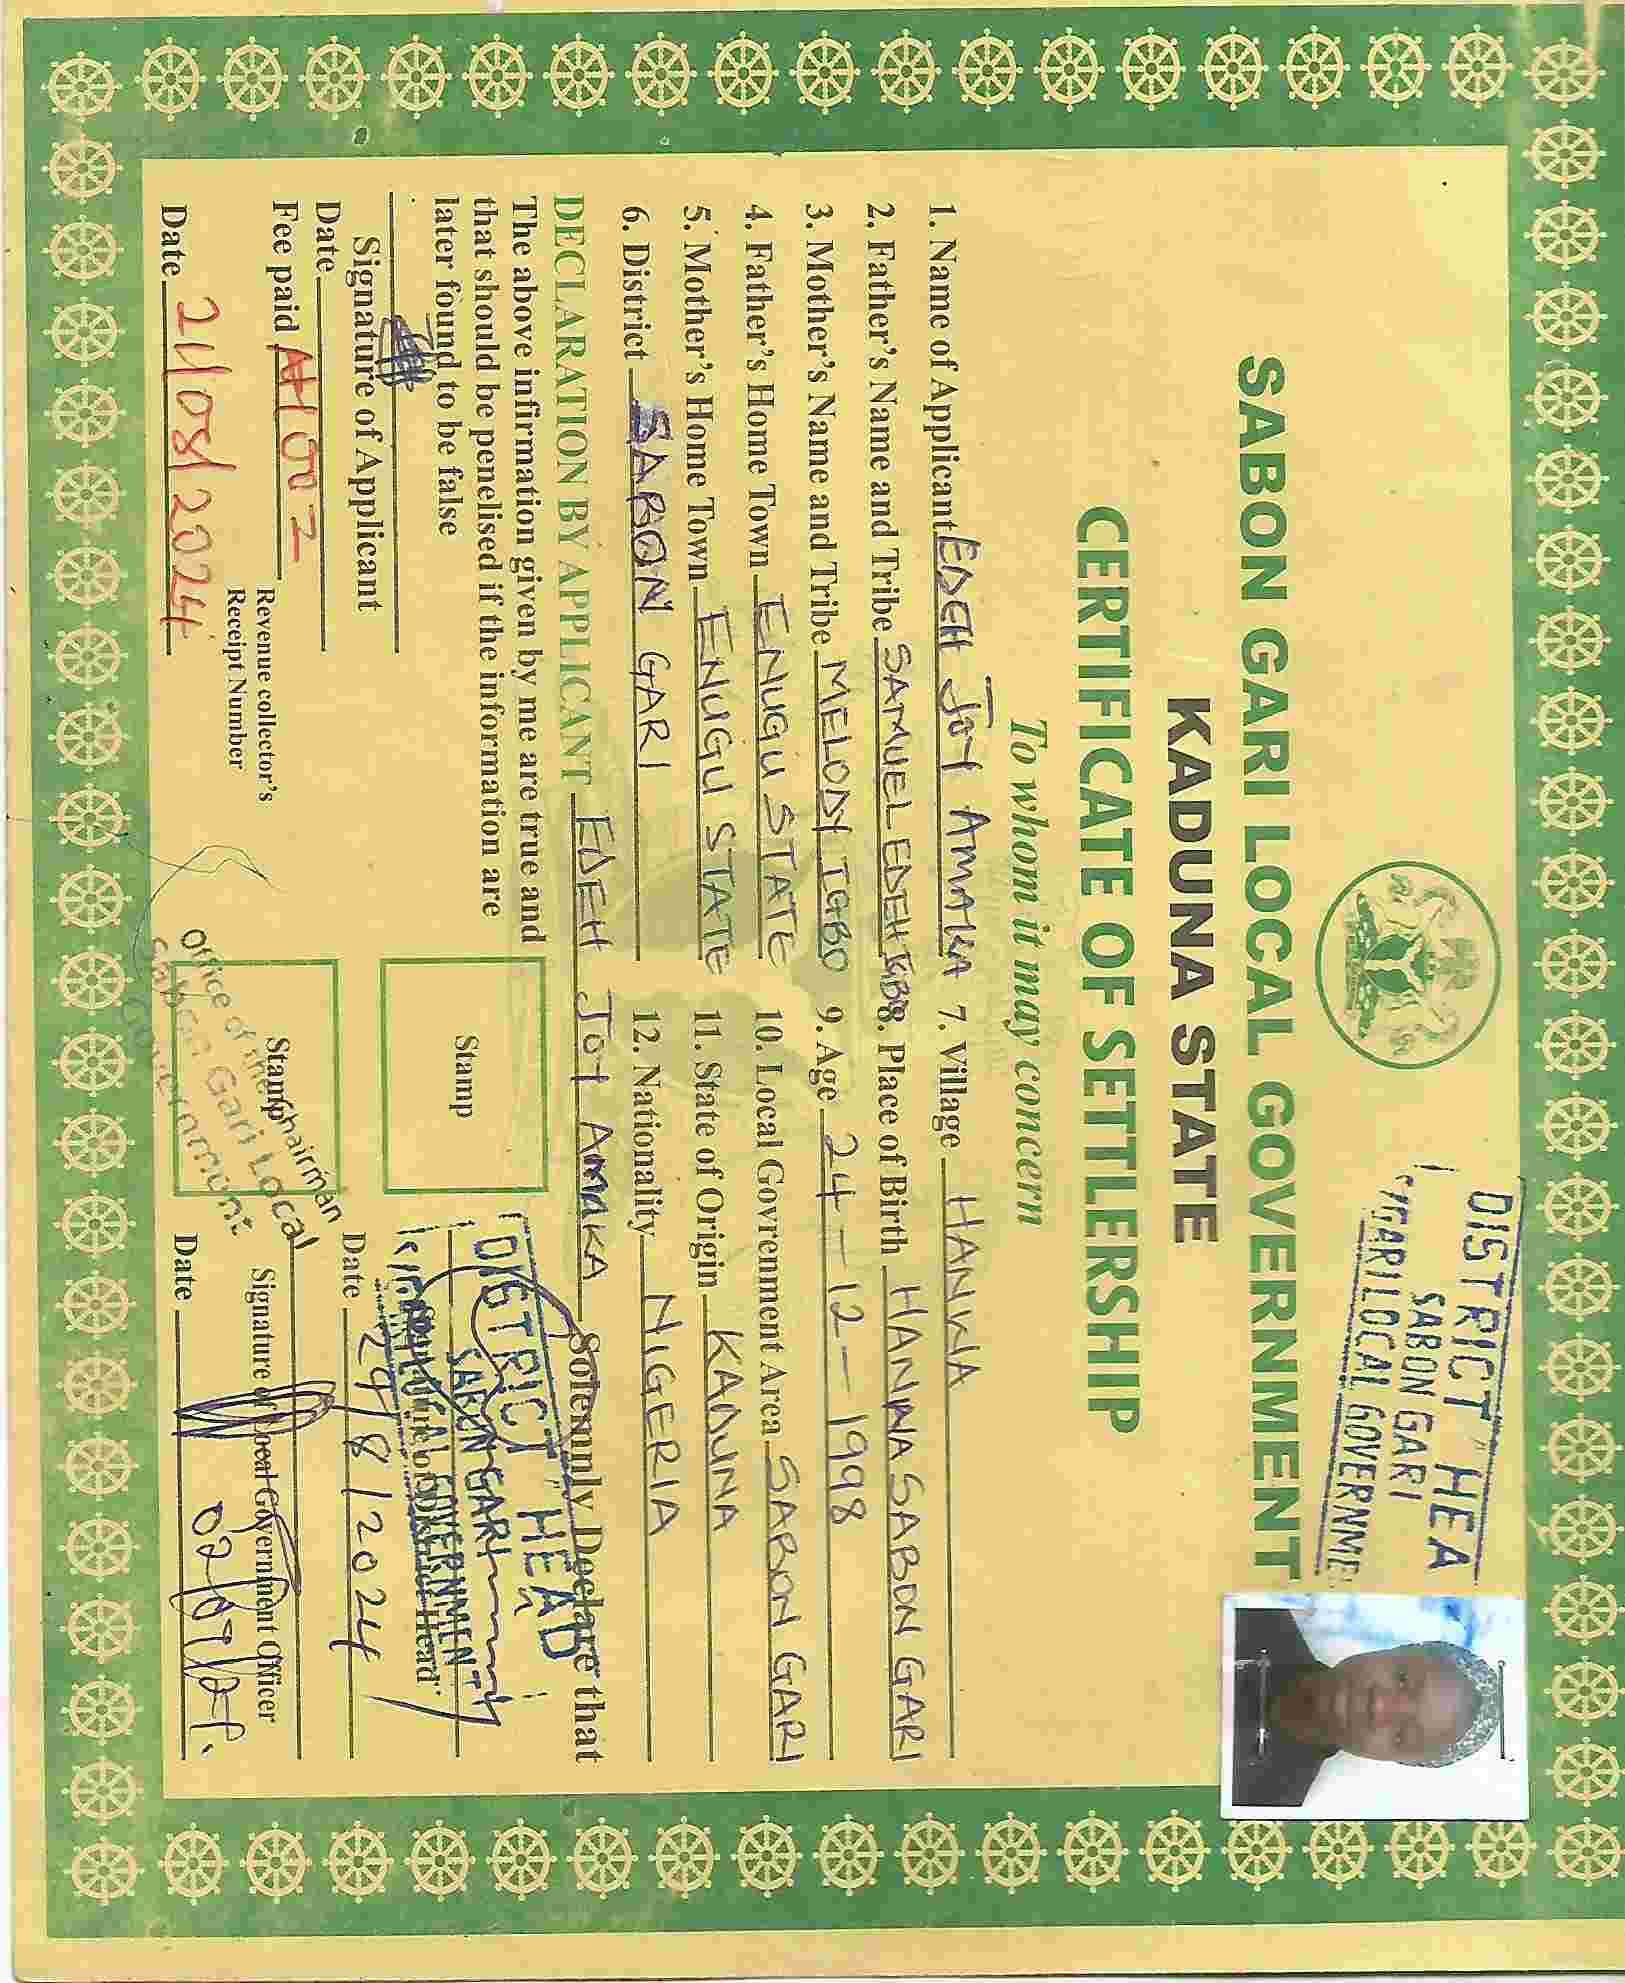 SABON GARI LOCAL GOVERNMENT
KADUNA STATE
CERTIFICATE OF SETTLERSHIP
To whom it may concern
DISTRICT HEA
SABON GARI
GARI LOCAL GOVERNME
1. Name of Applicant EDEH JOY AMAKA
2. Father's Name and Tribe SAMUEL EDEH IGBO
3. Mother's Name and Tribe MELODY IGBO
4. Father's Home Town ENUGU STATE
5. Mother's Home Town ENUGU STATE
6. District SABON GARI
7. Village HANWA
8. Place of Birth HANWA SABON GARI
9. Age 24-12-1998
10. Local Govrenment Area SABON GARI
11. State of Origin KADUNA
12. Nationality NIGERIA
DECLARATION BY APPLICANT EDEH JOY AMAKA Solemnly Declare that
The above infirmation given by me are true and
that should be penelised if the information are
later found to be false
Signature of Applicant
Date
Fee paid
Revenue collector's
Receipt Number
Date 21/08/2024
Stamp
DISTRICT HEAD
SABON GARI
LOCAL GOVERNMENT
District Head
Date 29/8/2024
Stamp
Office of the Chairman
Sabon Gari Local
Government
Signature of Local Government Officer
Date